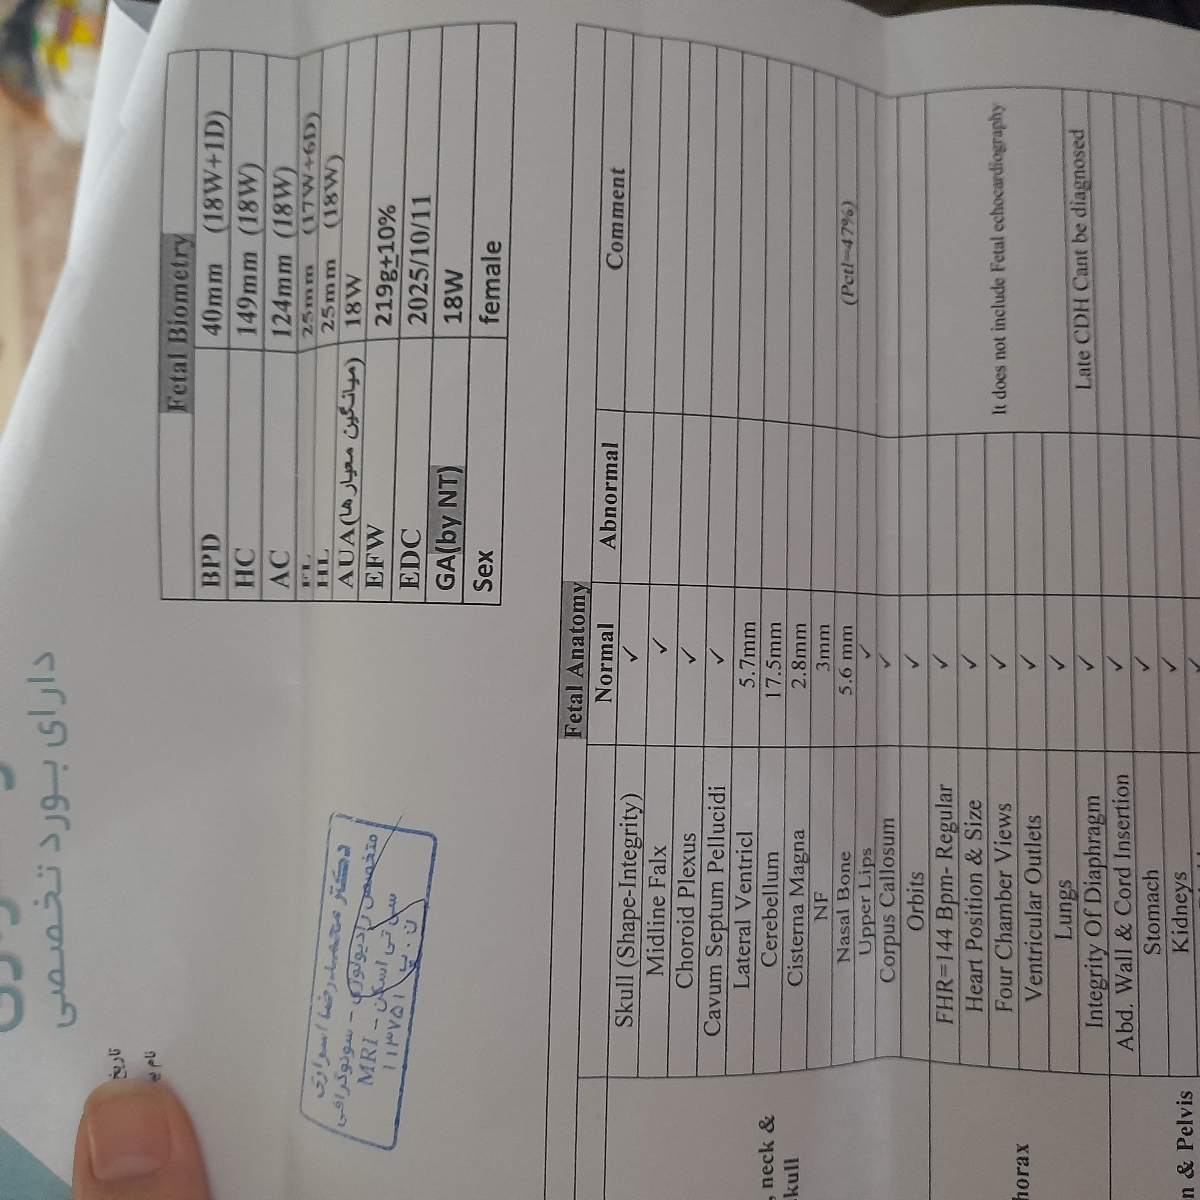 دارای بورد تخصصی
تاریخ
نام بی
Fetal Biometry
BPD 40mm (18W+1D)
HC 149mm (18W)
AC 124mm (18W)
FL 25mm (17W+6D)
HL 25mm (18W)
AUA(میانگین معیار ها) 18W
EFW 219g±10%
EDC 2025/10/11
GA(by NT) 18W
Sex female
دکتر محمدرضا
متخصص رادیولوژی - سونوگرافی
سی تی اسکن - MRI
ن . پ ۱۱۳۷۵۱
Fetal Anatomy
Normal Abnormal Comment
Skull (Shape-Integrity) ✓
Midline Falx ✓
Choroid Plexus ✓
Cavum Septum Pellucidi ✓
Lateral Ventricl 5.7mm
Cerebellum 17.5mm
Cisterna Magna 2.8mm
NF 3mm
Nasal Bone 5.6 mm (Pctl=47%)
Upper Lips ✓
Corpus Callosum ✓
Orbits ✓
, neck &
kull
FHR=144 Bpm- Regular ✓
Heart Position & Size ✓
Four Chamber Views ✓ It does not include Fetal echocardiography
Ventricular Outlets ✓
Lungs ✓
Integrity Of Diaphragm ✓ Late CDH Cant be diagnosed
horax
Abd. Wall & Cord Insertion ✓
Stomach ✓
Kidneys ✓
n & Pelvis